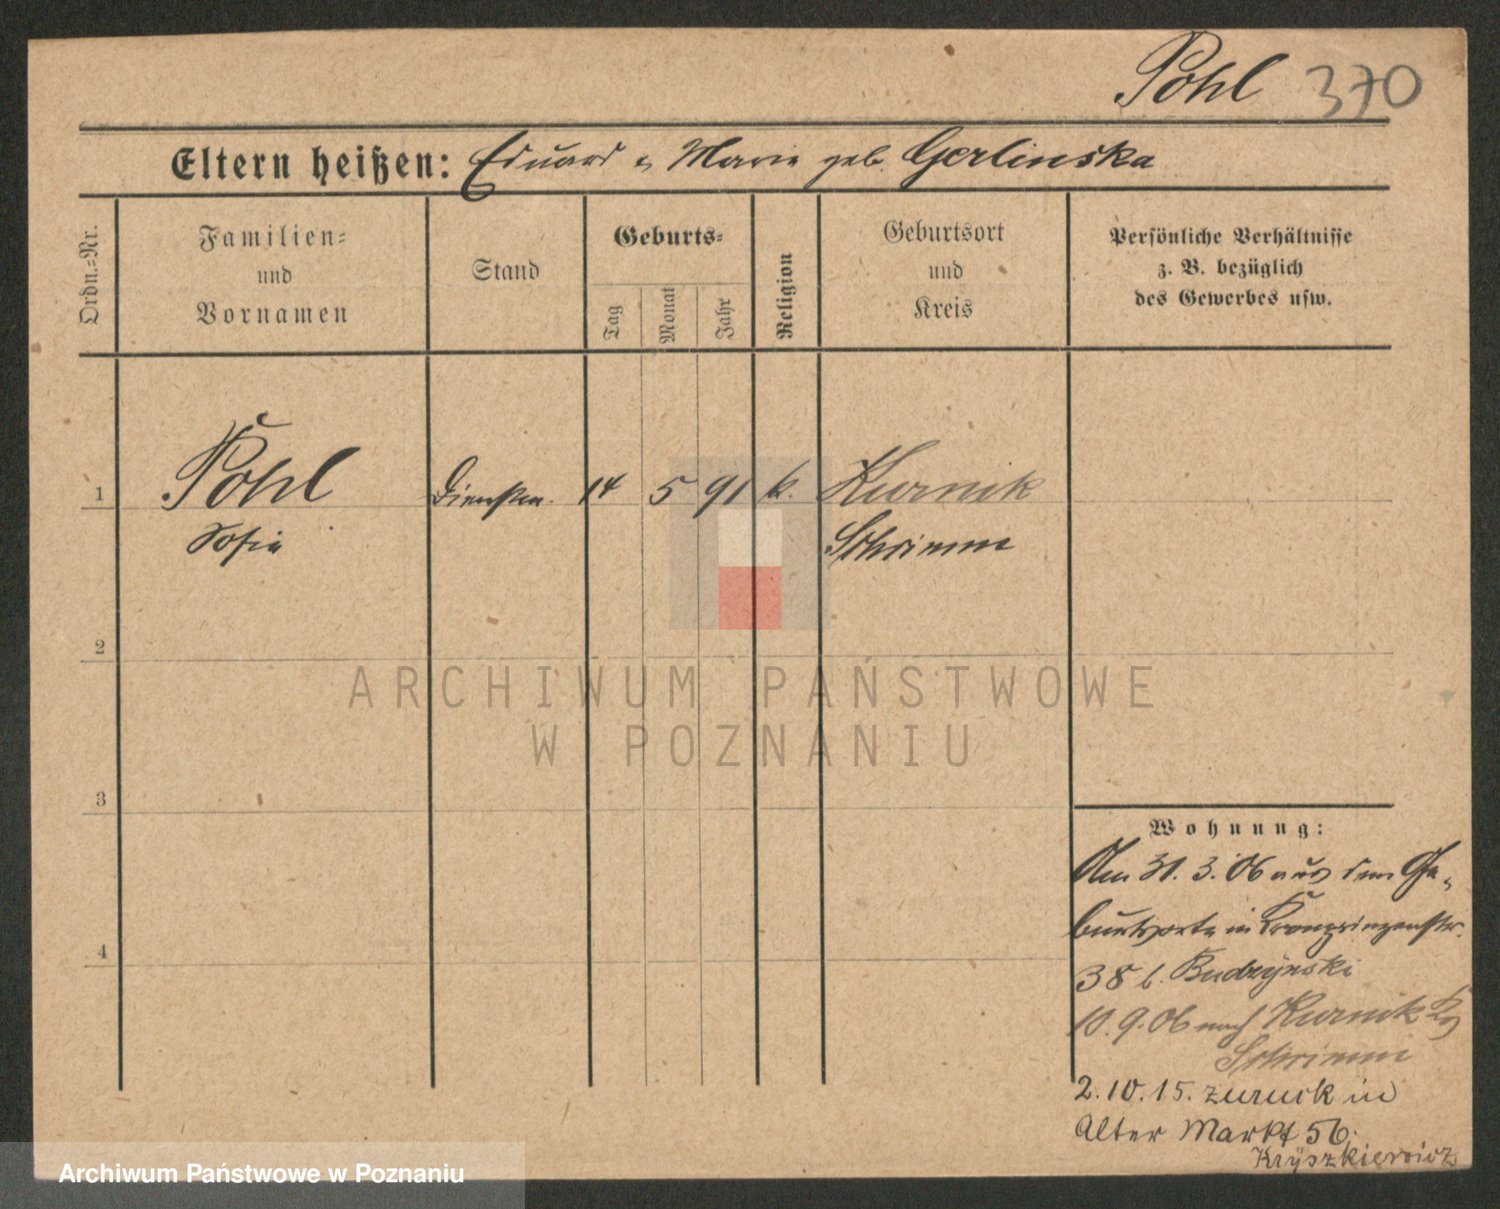 Pohl 370
Eltern heißen: Eduard u. Marie geb. Gerlinska
Ordn.=Nr.
Familien=
und
Vornamen
Stand
Geburts=
Tag
Monat
Jahr
Religion
Geburtsort
und
Kreis
Persönliche Verhältnisse
z. B. bezüglich
des Gewerbes usw.
1 Pohl 14 5 91 k. Kurnik
Sofie Schrimm
2
ARCHIWUM PAŃSTWOWE
W POZNANIU
3
4
Wohnung:
Am 31. 3. 06 aus dem Ge-
burtsorte in Kronprinzenstr.
38 b. Budzynski
10. 9. 06 nach Kurnik Kr
Schrimm
2. 10. 15. zurück in
Alter Markt 56.
Kryszkiewicz
Archiwum Państwowe w Poznaniu